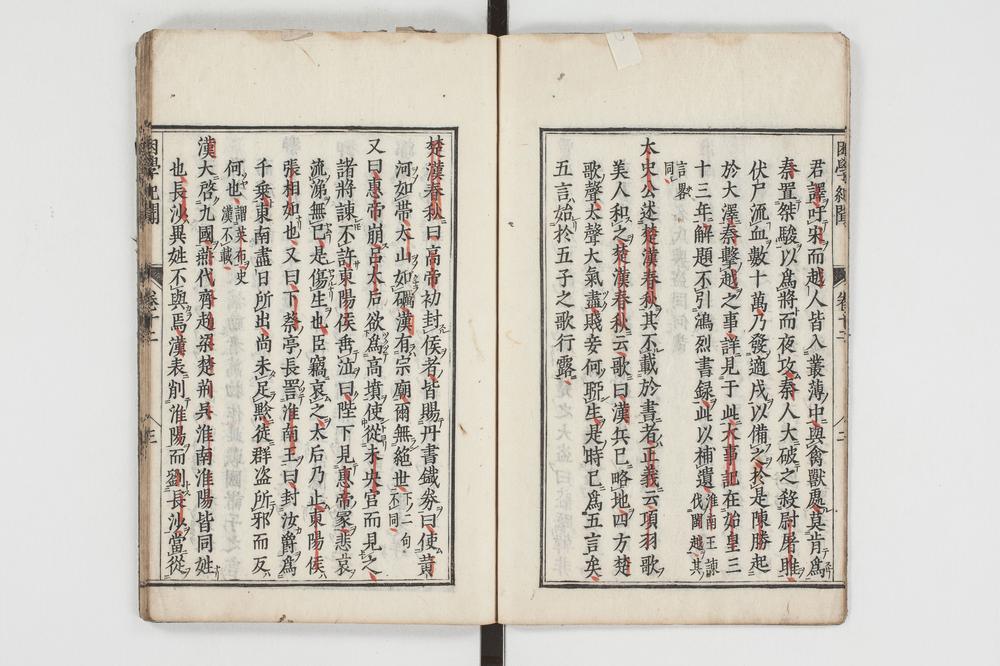 困學紀聞 卷十二 二
君譯吁宋而越人皆入叢薄中與禽獸處莫肯爲
秦置桀駿以爲將而夜攻秦人大破之殺尉屠睢
伏尸流血數十萬乃發適戍以備之於是陳勝起
於大澤秦擊越之事詳見于此大事記在始皇三
十三年解題不引鴻烈書錄此以補遺淮南王諫伐閩越其
言畧同
太史公述楚漢春秋其不載於書者正義云項羽歌
美人和之楚漢春秋云歌曰漢兵已略地四方楚
歌聲大王意氣盡賤妾何聊生是時已爲五言矣
五言始於五子之歌行露
楚漢春秋曰高帝初封侯者皆賜丹書鐵券曰使黃
河如帶太山如礪漢有宗廟爾無絕世下二句不同
又曰惠帝崩呂太后欲爲高墳使從未央宮而見之
諸將諫不許東陽侯垂泣曰陛下見惠帝冢悲哀
流涕無已是傷生也臣竊哀之太后乃止東陽侯
張相如也又曰下蔡亭長詈淮南王曰封汝爵爲
千乘東南盡日所出尚未足黥徒群盗所邪而反
何也謂英布史漢不載
漢大啓九國燕代齊趙梁楚荊吳淮南淮陽皆同姓
也長沙異姓不與焉漢表削淮陽而列長沙當從
困學紀聞 卷十二 三